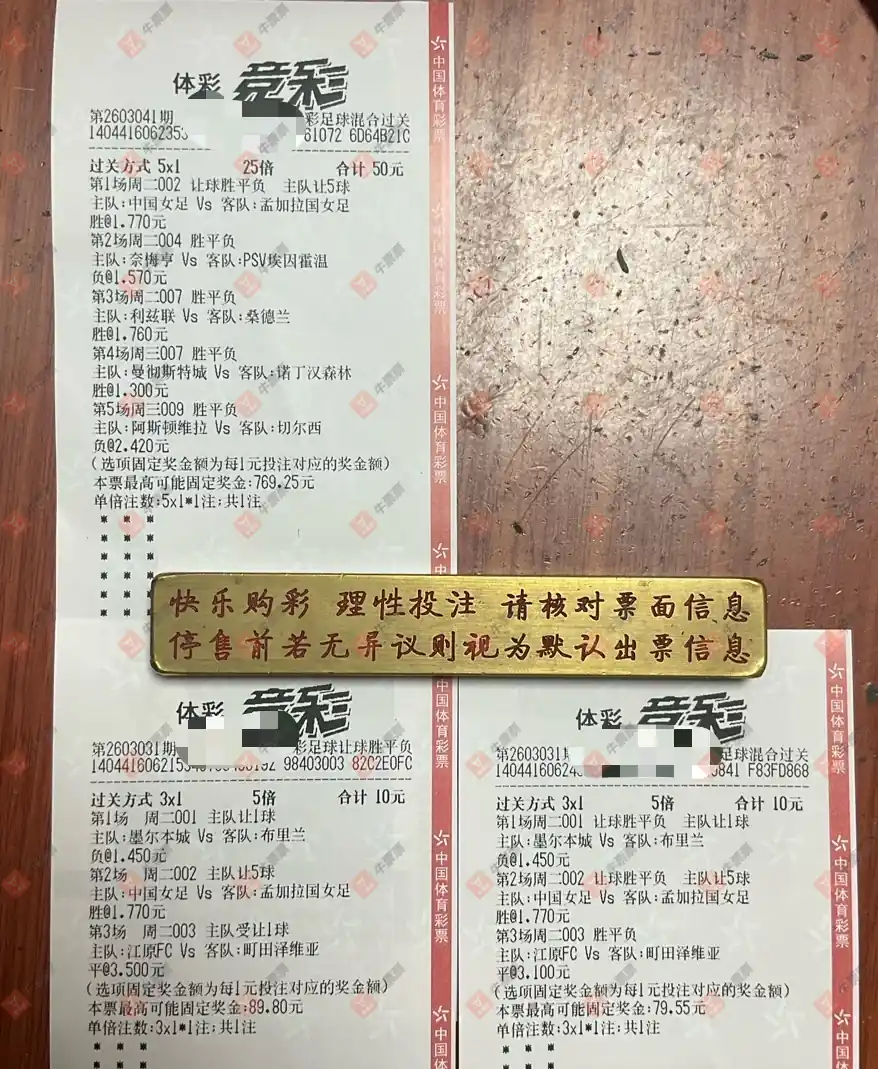 体彩 竞彩
第2603041期 彩足球混合过关
14044160623 61072 6D64B21C
过关方式 5x1 25倍 合计 50元
第1场周二002 让球胜平负 主队让5球
主队:中国女足 Vs 客队:孟加拉国女足
胜@1.770元
第2场周二004 胜平负
主队:奈梅亨 Vs 客队:PSV埃因霍温
负@1.570元
第3场周二007 胜平负
主队:利兹联 Vs 客队:桑德兰
胜@1.760元
第4场周三007 胜平负
主队:曼彻斯特城 Vs 客队:诺丁汉森林
胜@1.300元
第5场周三009 胜平负
主队:阿斯顿维拉 Vs 客队:切尔西
负@2.420元
(选项固定奖金额为每1元投注对应的奖金额)
本票最高可能固定奖金:769.25元
单倍注数:5x1*1注;共1注
中国体育彩票
中国体育彩票
中国体育彩票
快乐购彩 理性投注 请核对票面信息
停售前若无异议则视为默认出票信息
体彩 竞彩
第2603031期 彩足球让球胜平负
140441606215 98403003 82C2E0FC
过关方式 3x1 5倍 合计 10元
第1场 周二001 主队让1球
主队:墨尔本城 Vs 客队:布里兰
负@1.450元
第2场 周二002 主队让5球
主队:中国女足 Vs 客队:孟加拉国女足
胜@1.770元
第3场 周二003 主队受让1球
主队:江原FC Vs 客队:町田泽维亚
平@3.500元
(选项固定奖金额为每1元投注对应的奖金额)
本票最高可能固定奖金:89.80元
单倍注数:3x1*1注;共1注
中国体育彩票
中国体育彩票
体彩 竞彩
第2603031 足球混合过关
1404416062 F83FD868
过关方式 3x1 5倍 合计 10元
第1场周二001 让球胜平负 主队让1球
主队:墨尔本城 Vs 客队:布里兰
负@1.450元
第2场周二002 让球胜平负 主队让5球
主队:中国女足 Vs 客队:孟加拉国女足
胜@1.770元
第3场周二003 胜平负
主队:江原FC Vs 客队:町田泽维亚
平@3.100元
(选项固定奖金额为每1元投注对应的奖金额)
本票最高可能固定奖金:79.55元
单倍注数:3x1*1注;共1注
中国体育彩票
中国体育彩票
中国
牛票票